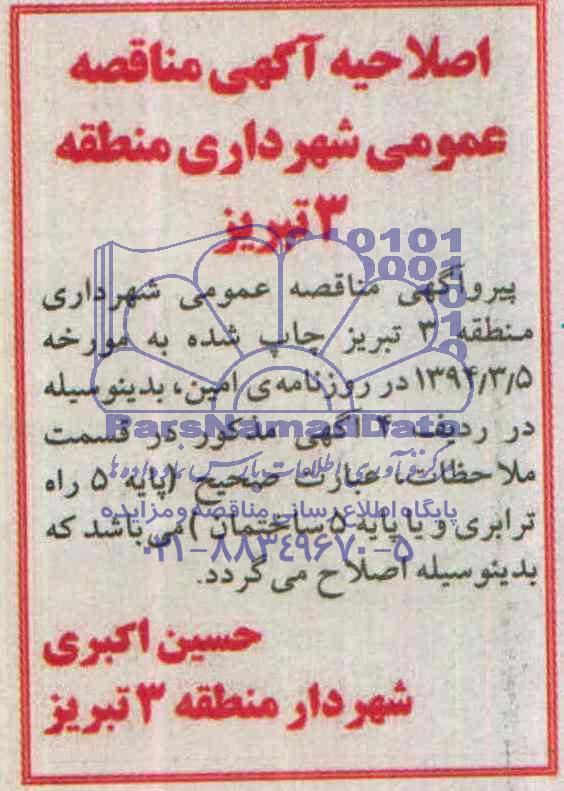 اصلاحیه آگهی مناقصه
عمومی شهرداری منطقه
۳ تبریز
پیروآگهی مناقصه عمومی شهرداری
منطقه ۳ تبریز چاپ شده به مورخه
۱۳۹۴/۳/۵ در روزنامه‌ی امین، بدینوسیله
در ردیف ۴ آگهی مذکور در قسمت
ملاحظات، عبارت صحیح (پایه ۵ راه
ترابری و یا پایه ۵ ساختمان) می باشد که
بدینوسیله اصلاح می گردد.
حسین اکبری
شهردار منطقه ۳ تبریز
0101
0001
ParsNamadData
گردآوری اطلاعات پارس نماد داده ها
پایگاه اطلاع رسانی مناقصه و مزایده
۰۲۱-۸۸۳۴۹۶۷۰-۵